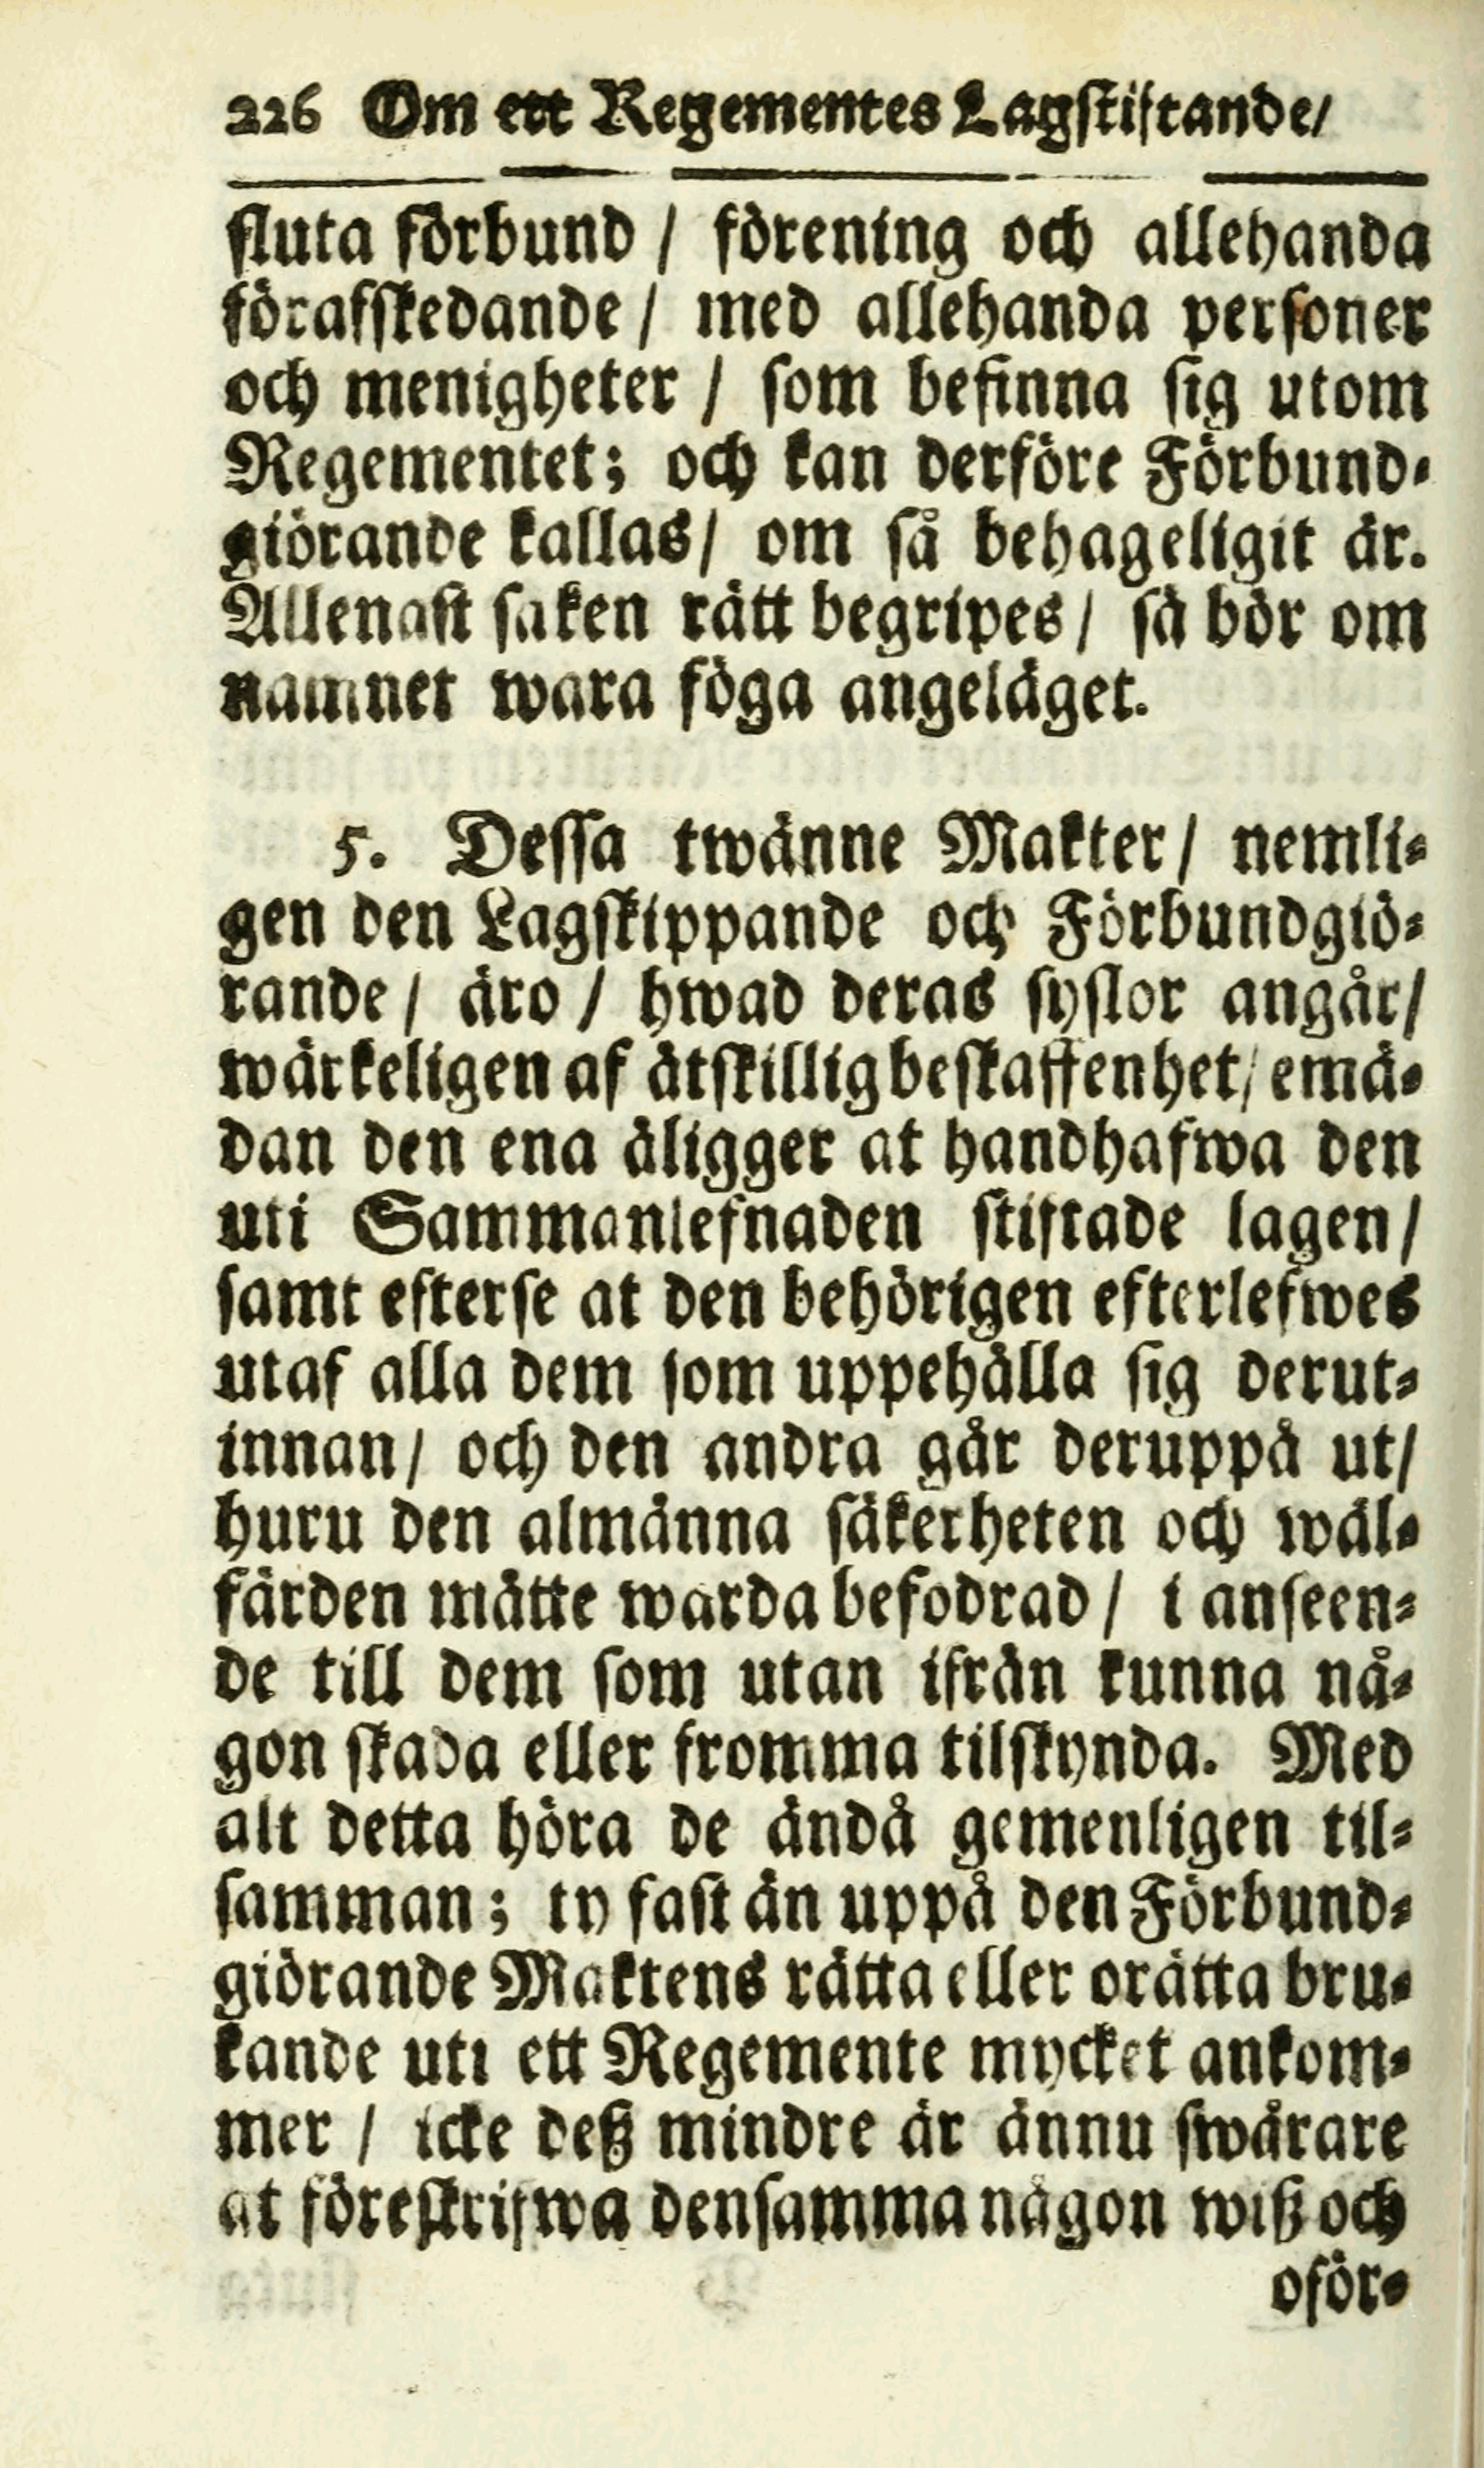 226 Om ett Regementes Lagstiftande/
sluta förbund / förening och allehanda
förafskedande / med allehanda personer
och menigheter / som befinna sig utom
Regementet; och kan derföre Förbund-
giörande kallas/ om så behageligit är.
Allenast saken rätt begripes / så bör om
namnet wara föga angeläget.
5. Dessa twänne Makter / nemli-
gen den Lagskippande och Förbundgiö-
rande / äro / hwad deras syslor angår/
wärkeligen af åtskillig beskaffenhet/ emä-
dan den ena åligger at handhafwa den
uti Sammanlefnaden stiftade lagen /
samt efterse at den behörigen efterlefwes
utaf alla dem som uppehålla sig derut-
innan / och den andra går deruppå ut/
huru den almänna säkerheten och wäl-
färden måtte warda befodrad / i anseen-
de till dem som utan ifrån kunna nå-
gon skada eller fromma tilskynda. Med
alt detta höra de ändå gemenligen til-
samman; ty fast än uppå den Förbund-
giörande Maktens rätta eller orätta bru-
kande uti ett Regemente mycket ankom-
mer / icke deß mindre är ännu swårare
at föreskrifwa densamma någon wiß och
oför-